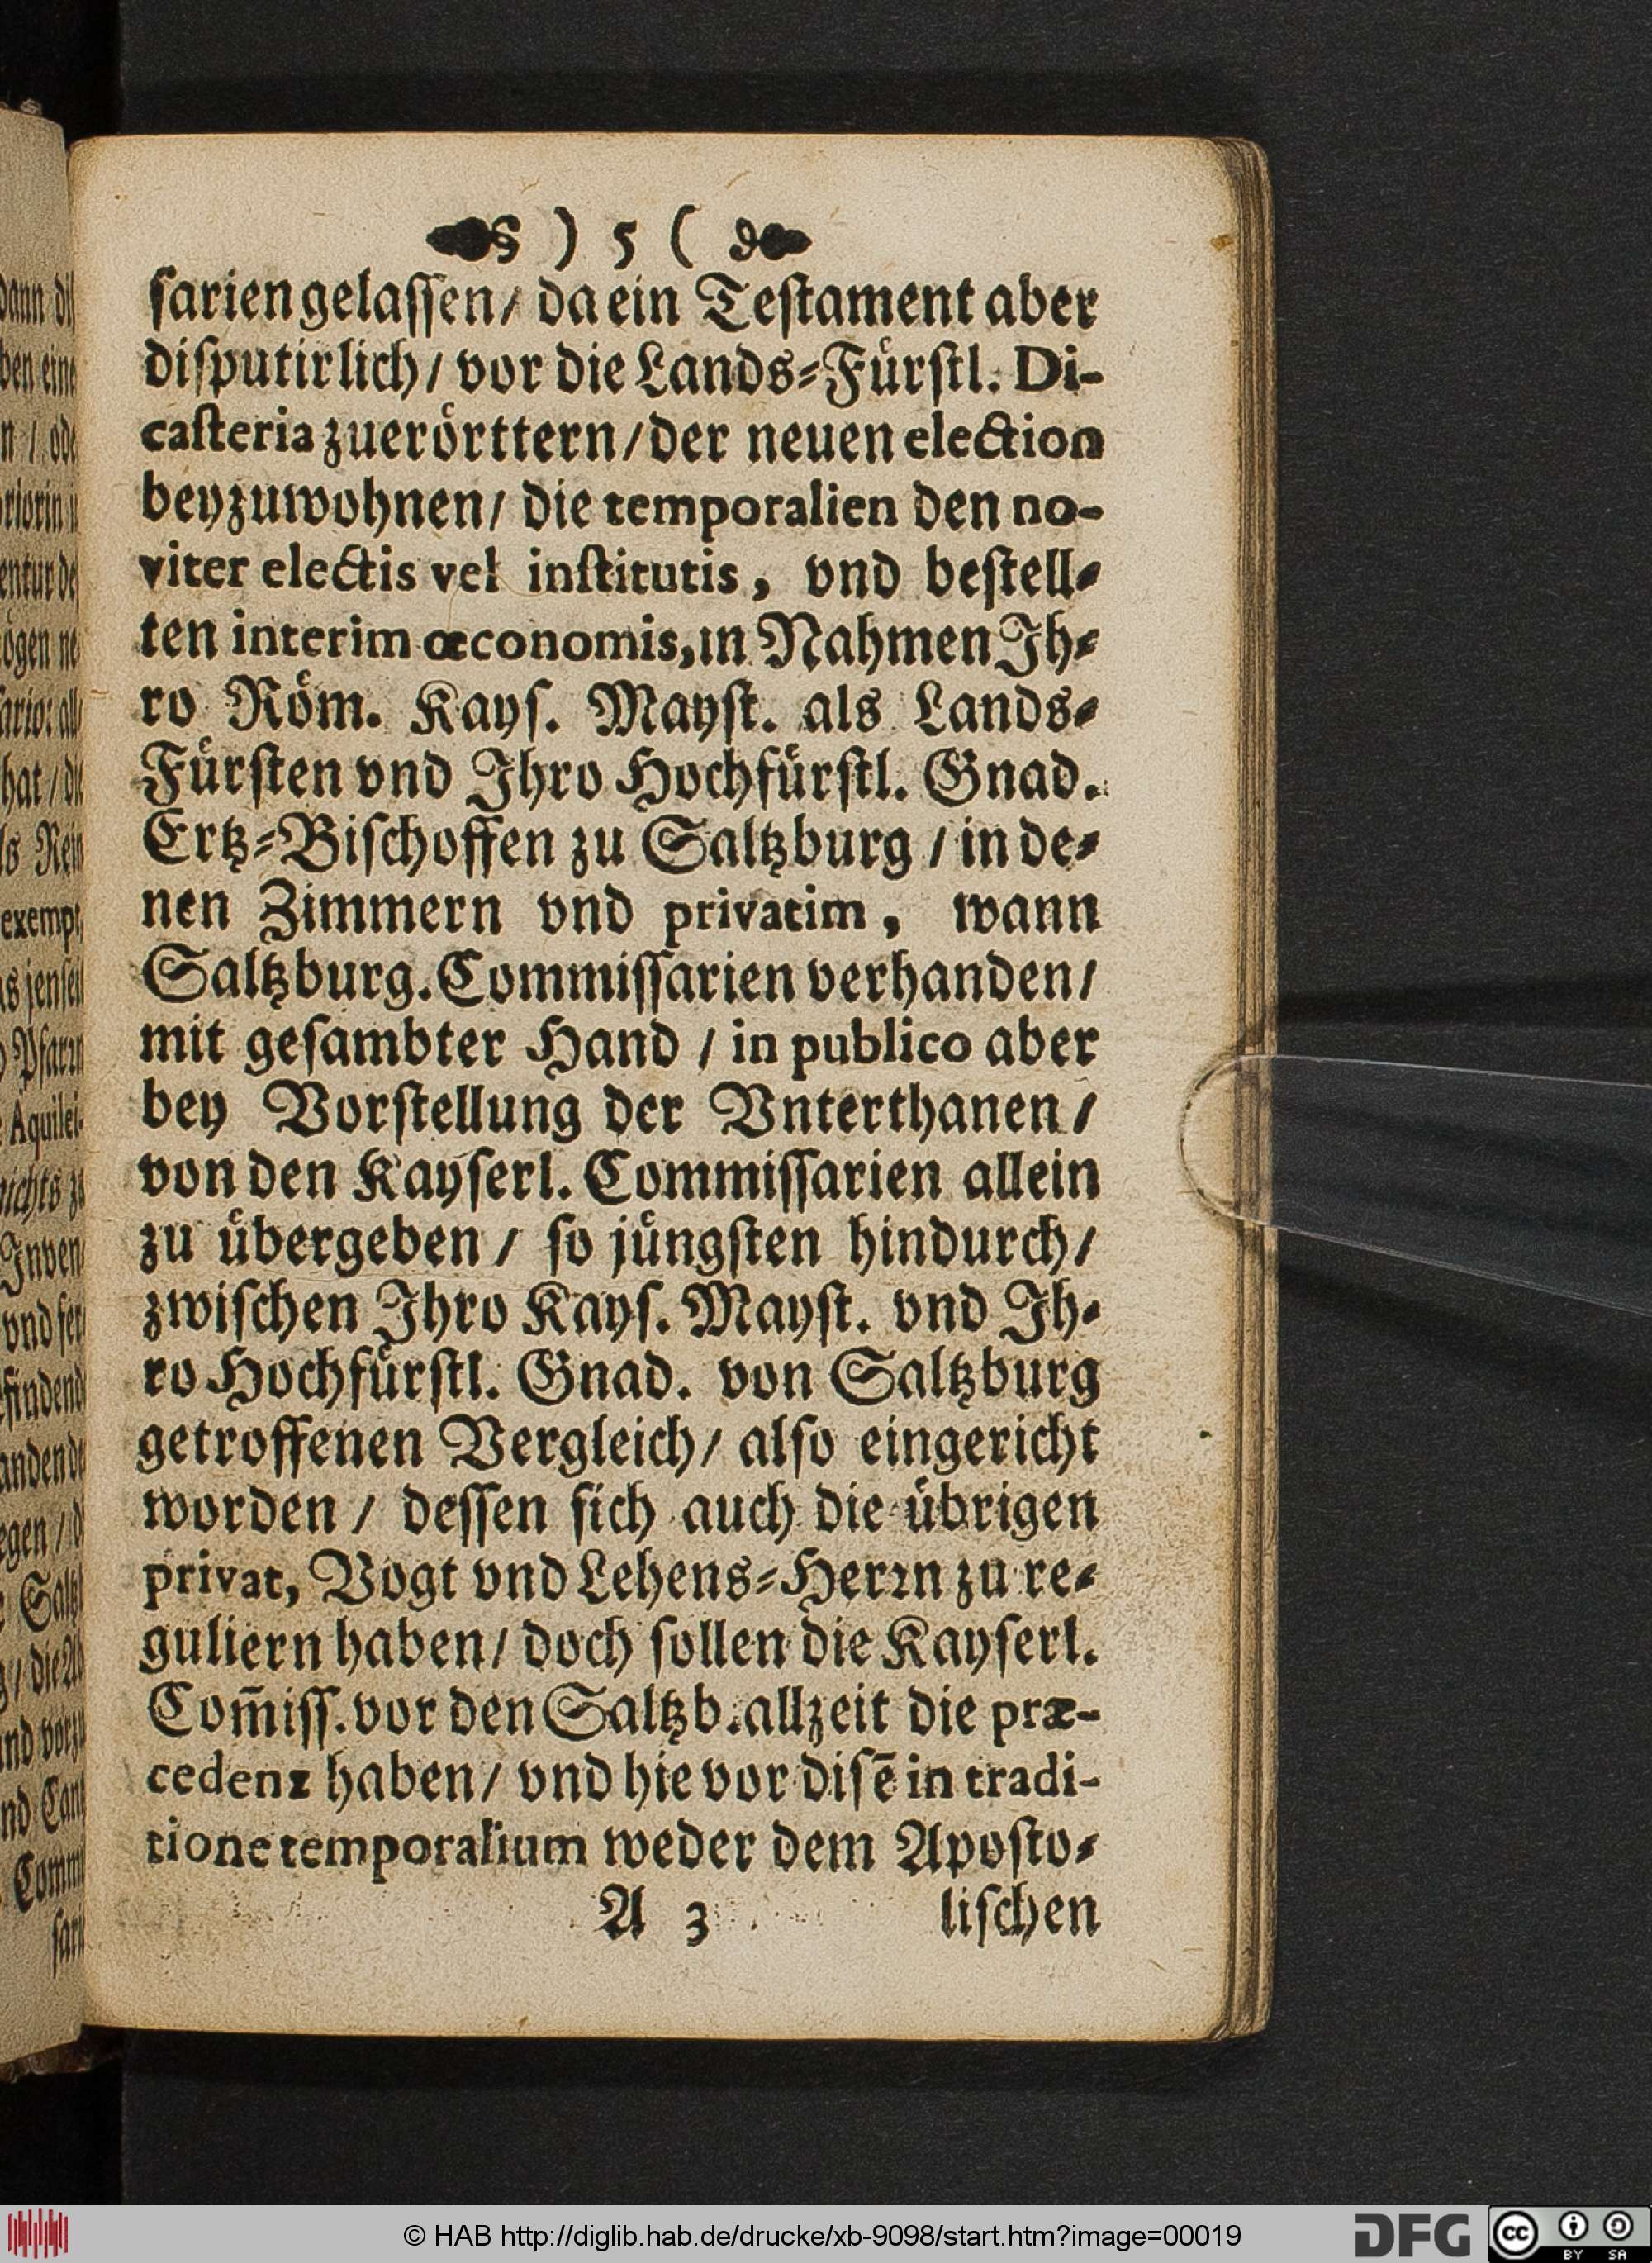 ) 5 (
sarien gelassen / da ein Testament aber
disputirlich / vor die Lands-Fürstl. Di-
casteria zuerörttern / der neuen election
beyzuwohnen / die temporalien den no-
viter electis vel institutis, vnd bestell-
ten interim œconomis, in Nahmen Ih-
ro Röm. Kays. Mayst. als Lands-
Fürsten vnd Ihro Hochfürstl. Gnad.
Ertz-Bischoffen zu Saltzburg / in de-
nen Zimmern vnd privatim, wann
Saltzburg. Commissarien verhanden /
mit gesambter Hand / in publico aber
bey Vorstellung der Vnterthanen /
von den Kayserl. Commissarien allein
zu übergeben / so jüngsten hindurch /
zwischen Ihro Kays. Mayst. vnd Ih-
ro Hochfürstl. Gnad. von Saltzburg
getroffenen Vergleich / also eingericht
worden / dessen sich auch die übrigen
privat, Vogt vnd Lehens-Herrn zu re-
guliern haben / doch sollen die Kayserl.
Com̄iss. vor den Saltzb. allzeit die præ-
cedenz haben / vnd hie vor disē in tradi-
tione temporalium weder dem Aposto-
A 3 lischen
© HAB http://diglib.hab.de/drucke/xb-9098/start.htm?image=00019
DFG
cc BY SA